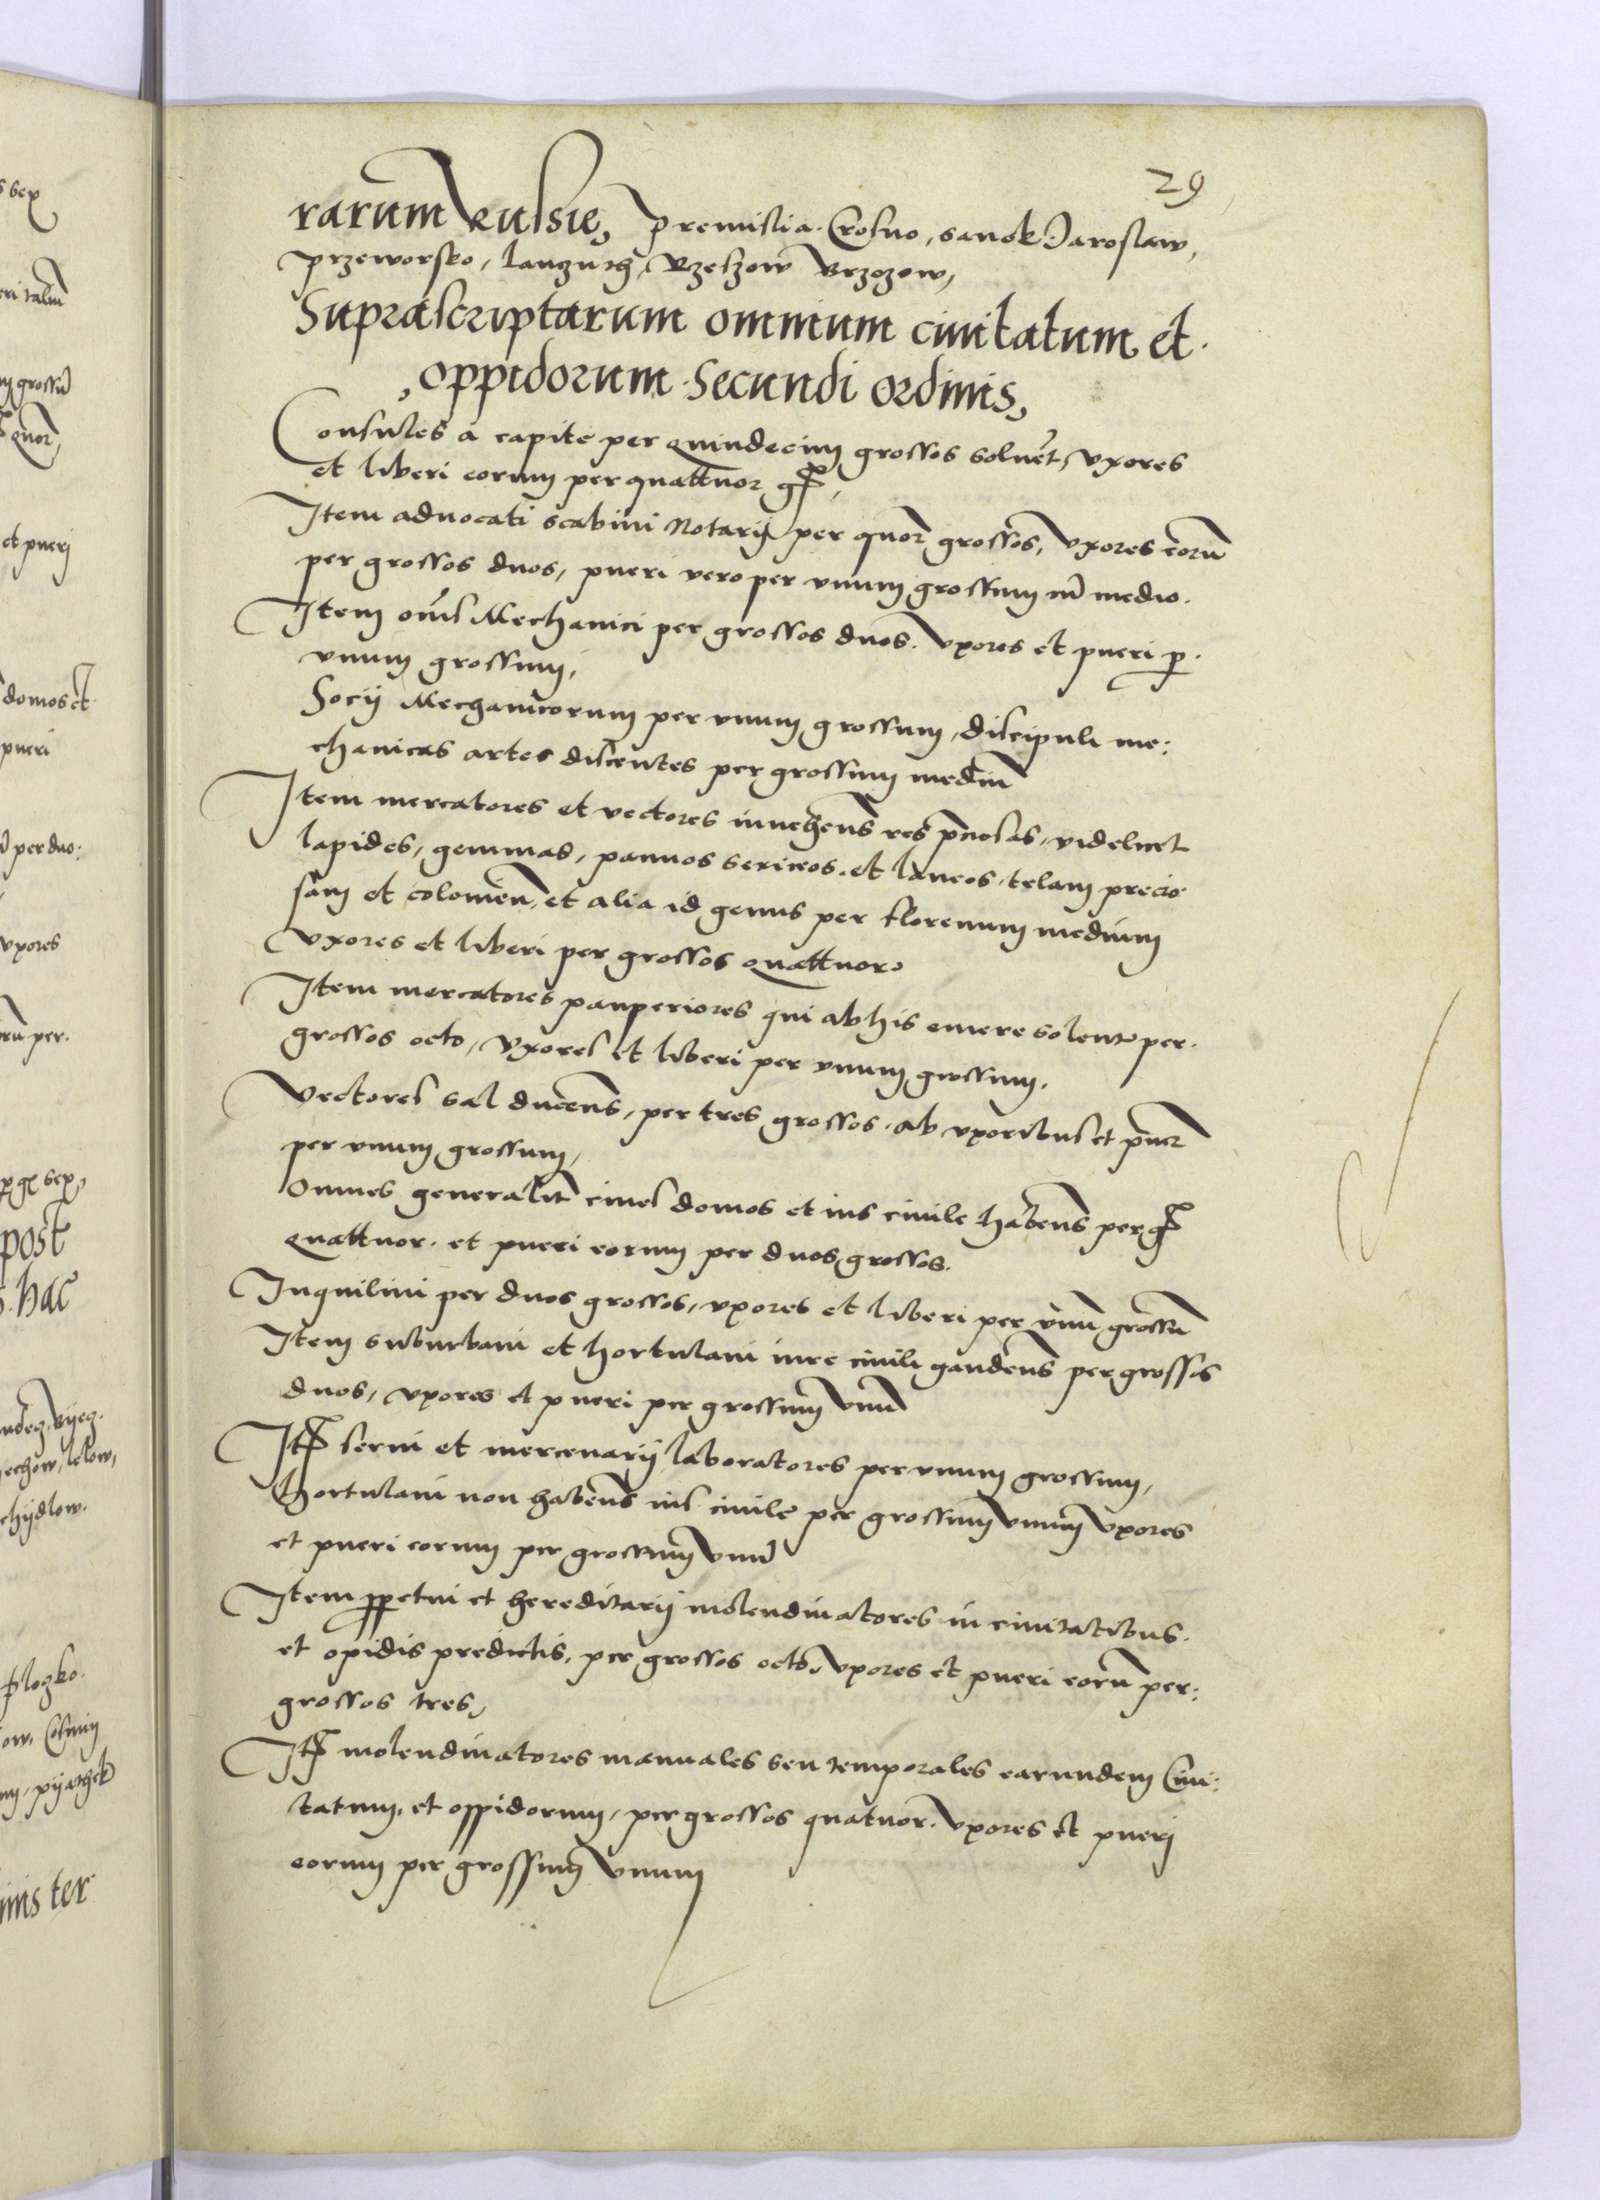 29
rarum Russie, Premislia. Crosno, Sanok. Jaroslaw,
Przeworsko, Lanczuth, Rzeschow Brzozow,
Suprascriptarum omnium civitatum et.
oppidorum Secundi ordinis,
Consules a capite per Quindecim grossos solvẽt, Uxores
et liberi eorum per quattuor gr̃,
Item advocati scabini Notarij per quor̃ grossos, Uxores eorũ
per grossos duos, pueri vero per unum grossum cũ medio.
Item oẽs Mechanici per grossos duos. Uxores et pueri p.
unum grossum,
Socij Mechanicorum per unum grossum, discipuli me:
chanicas artes discentes per grossum mediũ
Item mercatores et vectores invehẽns res p̃ciosas, videlicet
lapides, gemmas, pannos sericeos. et laneos, telam precio
sam et colomen̄, et alia id genus per florenum medium
Uxores et liberi per grossos Quattuor
Item mercatores pauperiores qui ab his emere solent per.
grossos octo, Uxores et liberi per unum grossum.
Vectores sal ducẽns, per tres grossos. ab uxoribus et puer̃
per unum grossum,
Omnes generalit̃ cives domos et ius civile habẽns per gr̃
Quattuor. et pueri eorum per duos grossos.
Inquilini per duos grossos, uxores et liberi per unũ grossũ
Item suburbani et hortulani iure civili gaudẽns per grossos
duos, uxores et pueri per grossum unũ
It̃ servi et mercenarij laboratores per unum grossum,
Hortulani non habẽns ius civile per grossum unum Uxores
et pueri eorum per grossum unũ
Item ꝑpetui et hereditarij molendinatores in civitatibus.
et opidis predictis, per grossos octo, uxores et pueri eorũ per:
grossos tres,
It̃ molendinatores manuales seu temporales earundem Civi:
tatum, et oppidorum, per grossos quatuor. Uxores et pueri
eorum per grossum unum
sex
grossũ
et pueri
domos et
pueri
per duo:
uxores
per.
post
hac
lelow,
chijdlow.
plozko.
pijathek